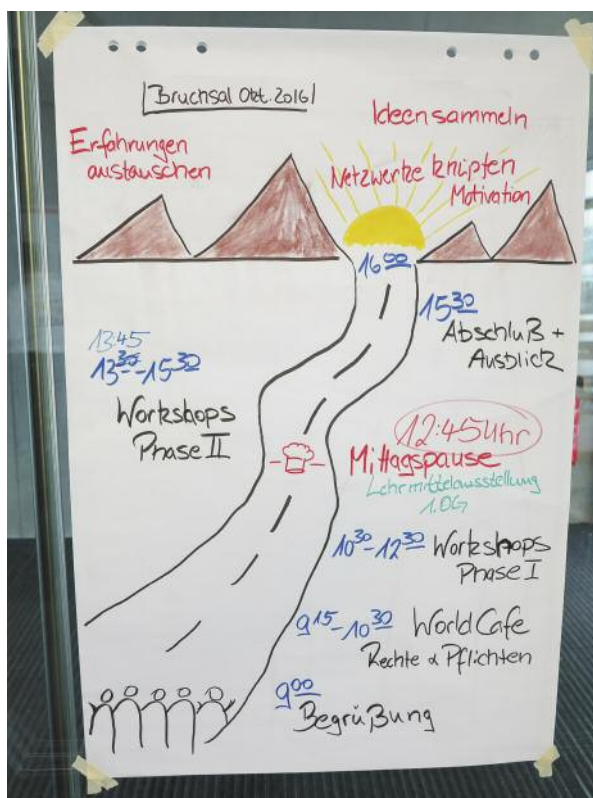 Bruchsal Okt. 2016
Ideen sammeln
Erfahrungen
austauschen
Netzwerke knüpfen
Motivation
16 00
15 30
Abschluß +
Ausblick
13:45
13 30 - 15 30
Workshops
Phase II
12:45 Uhr
Mittagspause
Lehrmittelausstellung
1.OG
10 30 - 12 30 Workshops
Phase I
9 15 - 10 30 World Cafe
Rechte & Pflichten
9 00
Begrüßung